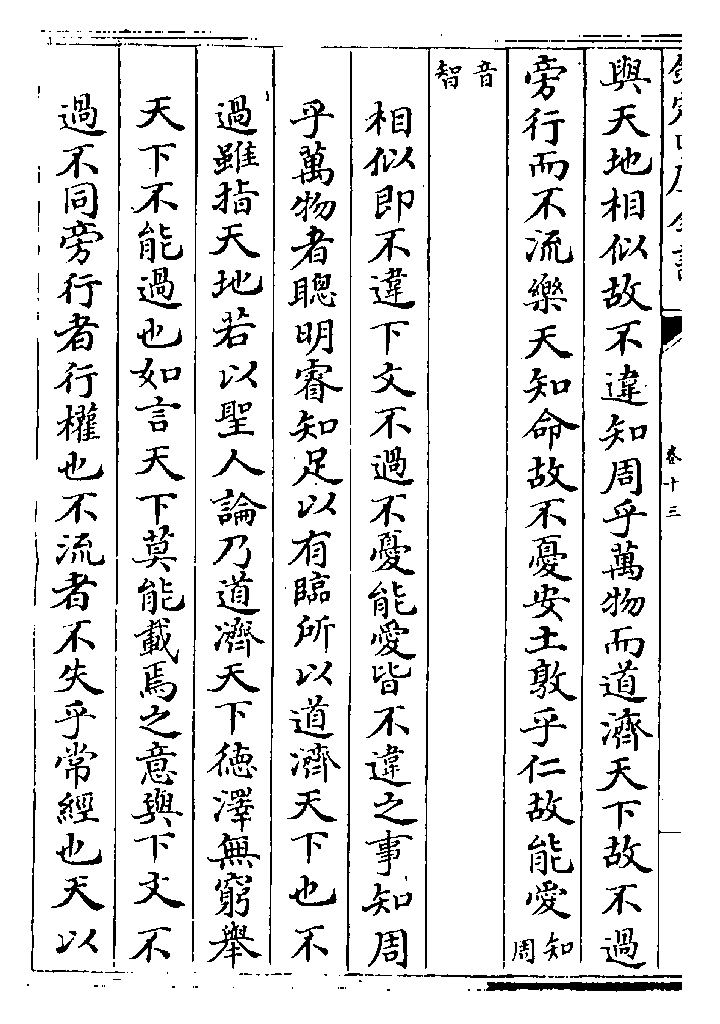 欽定四庫全書
卷十三
與天地相似故不違知周乎萬物而道濟天下故不過
旁行而不流樂天知命故不憂安土敦乎仁故能愛知周
音智
相似即不違下文不過不憂能愛皆不違之事知周
乎萬物者聰明睿知足以有臨所以道濟天下也不
過雖指天地若以聖人論乃道濟天下德澤無窮舉
天下不能過也如言天下莫能載焉之意與下文不
過不同旁行者行權也不流者不失乎常經也天以